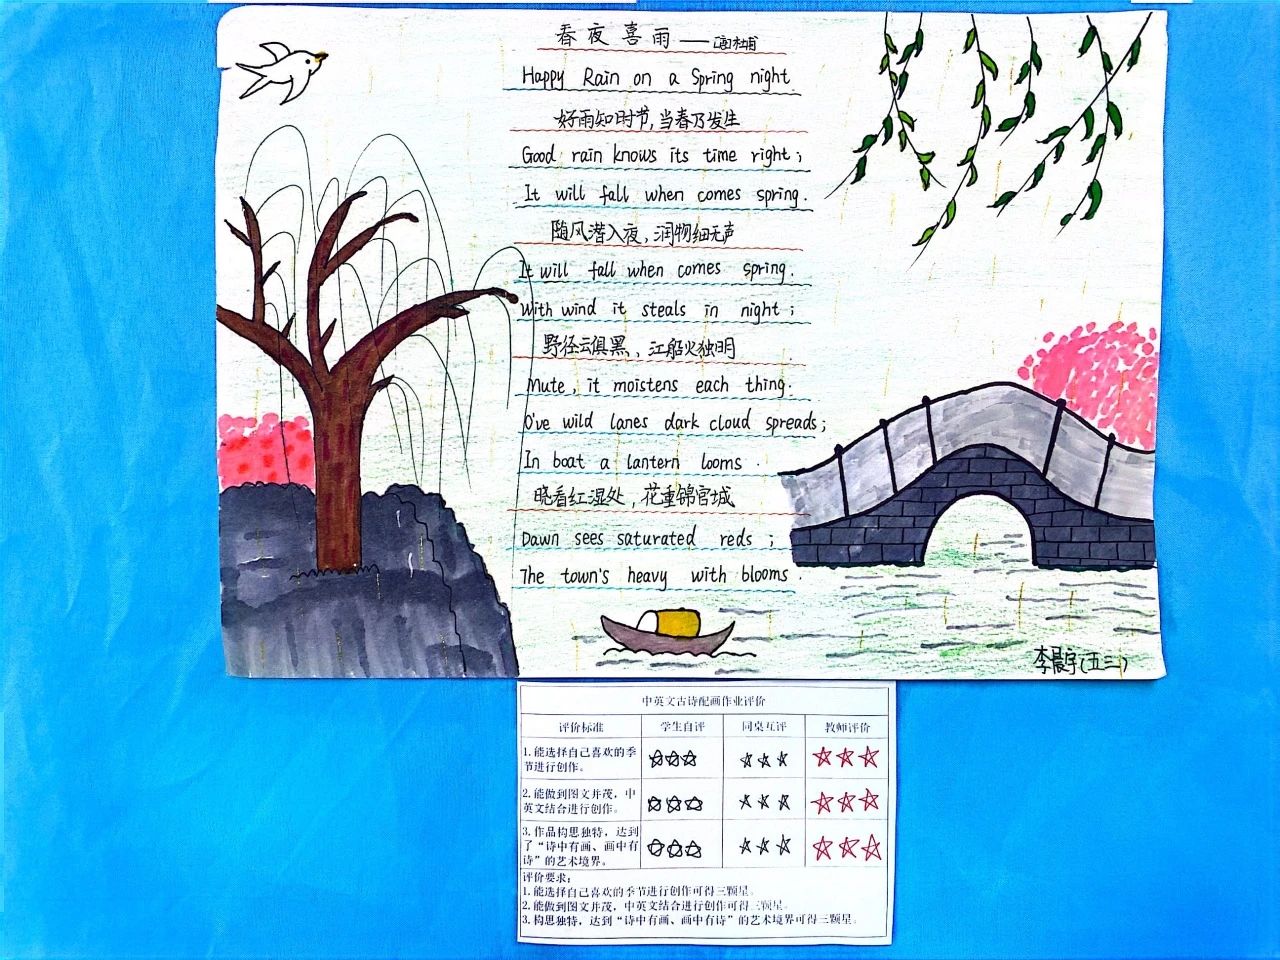 春夜喜雨——唐杜甫
Happy Rain on a Spring night.
好雨知时节,当春乃发生
Good rain knows its time right;
It will fall when comes spring.
随风潜入夜,润物细无声
It will fall when comes spring.
With wind it steals in night;
野径云俱黑、江船火独明
Mute, it moistens each thing.
O've wild lanes dark cloud spreads;
In boat a lantern looms.
晓看红湿处,花重锦官城
Dawn sees saturated reds;
The town's heavy with blooms.
李晨宇(五三)
中英文古诗配画作业评价
评价标准 学生自评 同桌互评 教师评价
1.能选择自己喜欢的季
节进行创作。
2.能做到图文并茂,中
英文结合进行创作。
3.作品构思独特,达到
了“诗中有画、画中有
诗”的艺术境界。
评价要求:
1.能选择自己喜欢的季节进行创作可得三颗星。
2.能做到图文并茂,中英文结合进行创作可得三颗星。
3.构思独特,达到“诗中有画、画中有诗”的艺术境界可得三颗星。